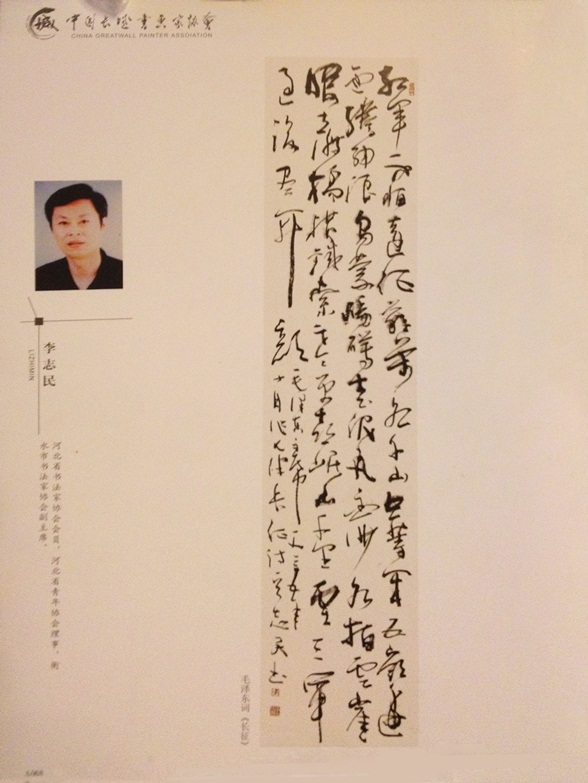 中国长城书画家协会
CHINA GREATWALL PAINTER ASSOIATION
李志民
LIZHIMIN
河北省书法家协会会员，河北省青年协会理事，衡
水市书法家协会副主席。
红军不怕远征难万水千山只等闲五岭逶
迤腾细浪乌蒙磅礴走泥丸金沙水拍云崖
暖大渡桥横铁索寒更喜岷山千里雪三军
过后尽开颜
毛泽东主席一九三五年
十月作七律长征诗 志民书
毛泽东词《长征》